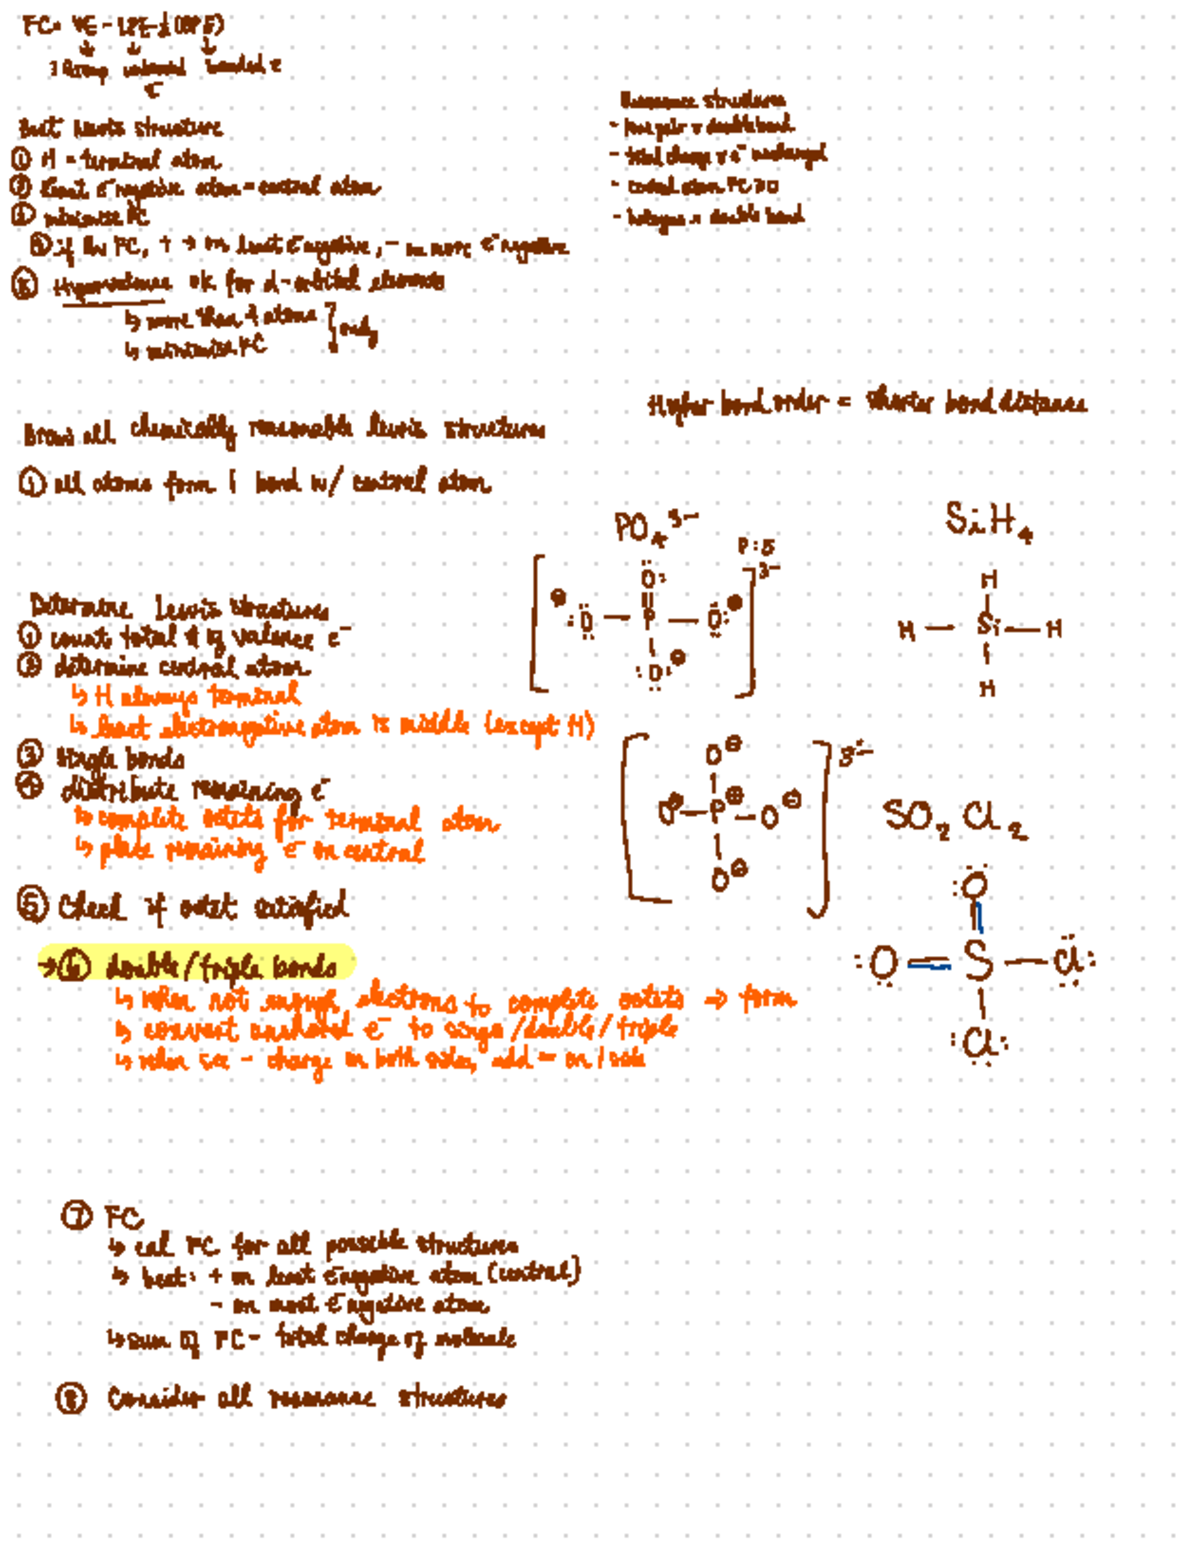 FC = VE - LPE - ½(BPE)
group unbound bonded e
e⁻
Best Lewis structure
① H = terminal atom
② least e⁻negative atom = central atom
③ minimise FC
④ if has FC, + → on least e⁻negative, - on more e⁻negative
⑤ Hypervalence ok for d-orbital elements
↳ more than 4 atoms
↳ minimise FC
} only
Resonance structures
- lone pair → double bond
- total charge & e⁻ unchanged
- central atom FC
- halogens × double bond
Higher bond order = shorter bond distance
Draw all chemically reasonable lewis structures
① all atoms form 1 bond w/ central atom
Determine lewis structures
① count total # of valence e⁻
② determine central atom
↳ H always terminal
↳ least electronegative atom is middle (except H)
③ single bonds
④ distribute remaining e⁻
↳ complete octets for terminal atom
↳ place remaining e⁻ on central
⑤ Check if octet satisfied
→ ⑥ double/triple bonds
↳ when not enough electrons to complete octets ⇒ form
↳ convert unshared e⁻ to single/double/triple
↳ when see - charge on both sides, add = on 1 side
⑦ FC
↳ cal FC for all possible structures
↳ best: + on least e⁻negative atom (central)
- on most e⁻negative atom
↳ sum of FC = total charge of molecule
⑧ Consider all resonance structures
PO₄³⁻
P: 5
3-
O
O — P — O
O
3-
O⊖
O⊖ — P⊕ — O⊖
O⊖
SiH₄
H
H — Si — H
H
SO₂Cl₂
O
O = S — Cl
Cl